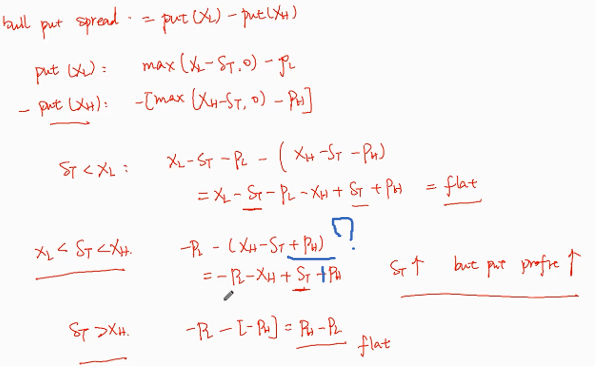 bull put spread. = put(XL) - put(XH)
put (XL): max (XL-ST, 0) - PL
- put (XH): -[max (XH-ST, 0) - PH]
ST < XL: XL-ST-PL - (XH-ST-PH)
= XL - ST - PL - XH + ST + PH = flat
XL < ST < XH. -PL - (XH-ST+PH) ?
= -PL-XH+ST+PH ST↑ but put profit ↑
ST > XH. -PL - [-PH] = PH-PL flat